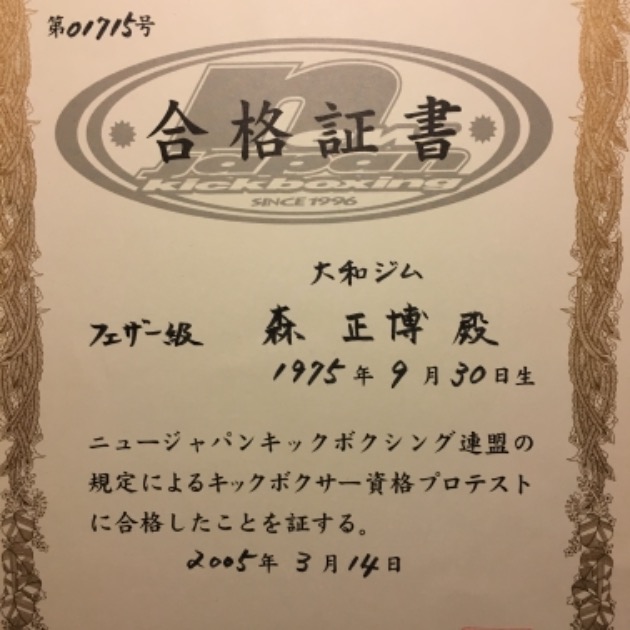 第01715号
合格証書
n
japan
kickboxing
SINCE 1996
大和ジム
フェザー級 森 正博 殿
1975年9月30日生
ニュージャパンキックボクシング連盟の
規定によるキックボクサー資格プロテスト
に合格したことを証する。
2005年3月14日